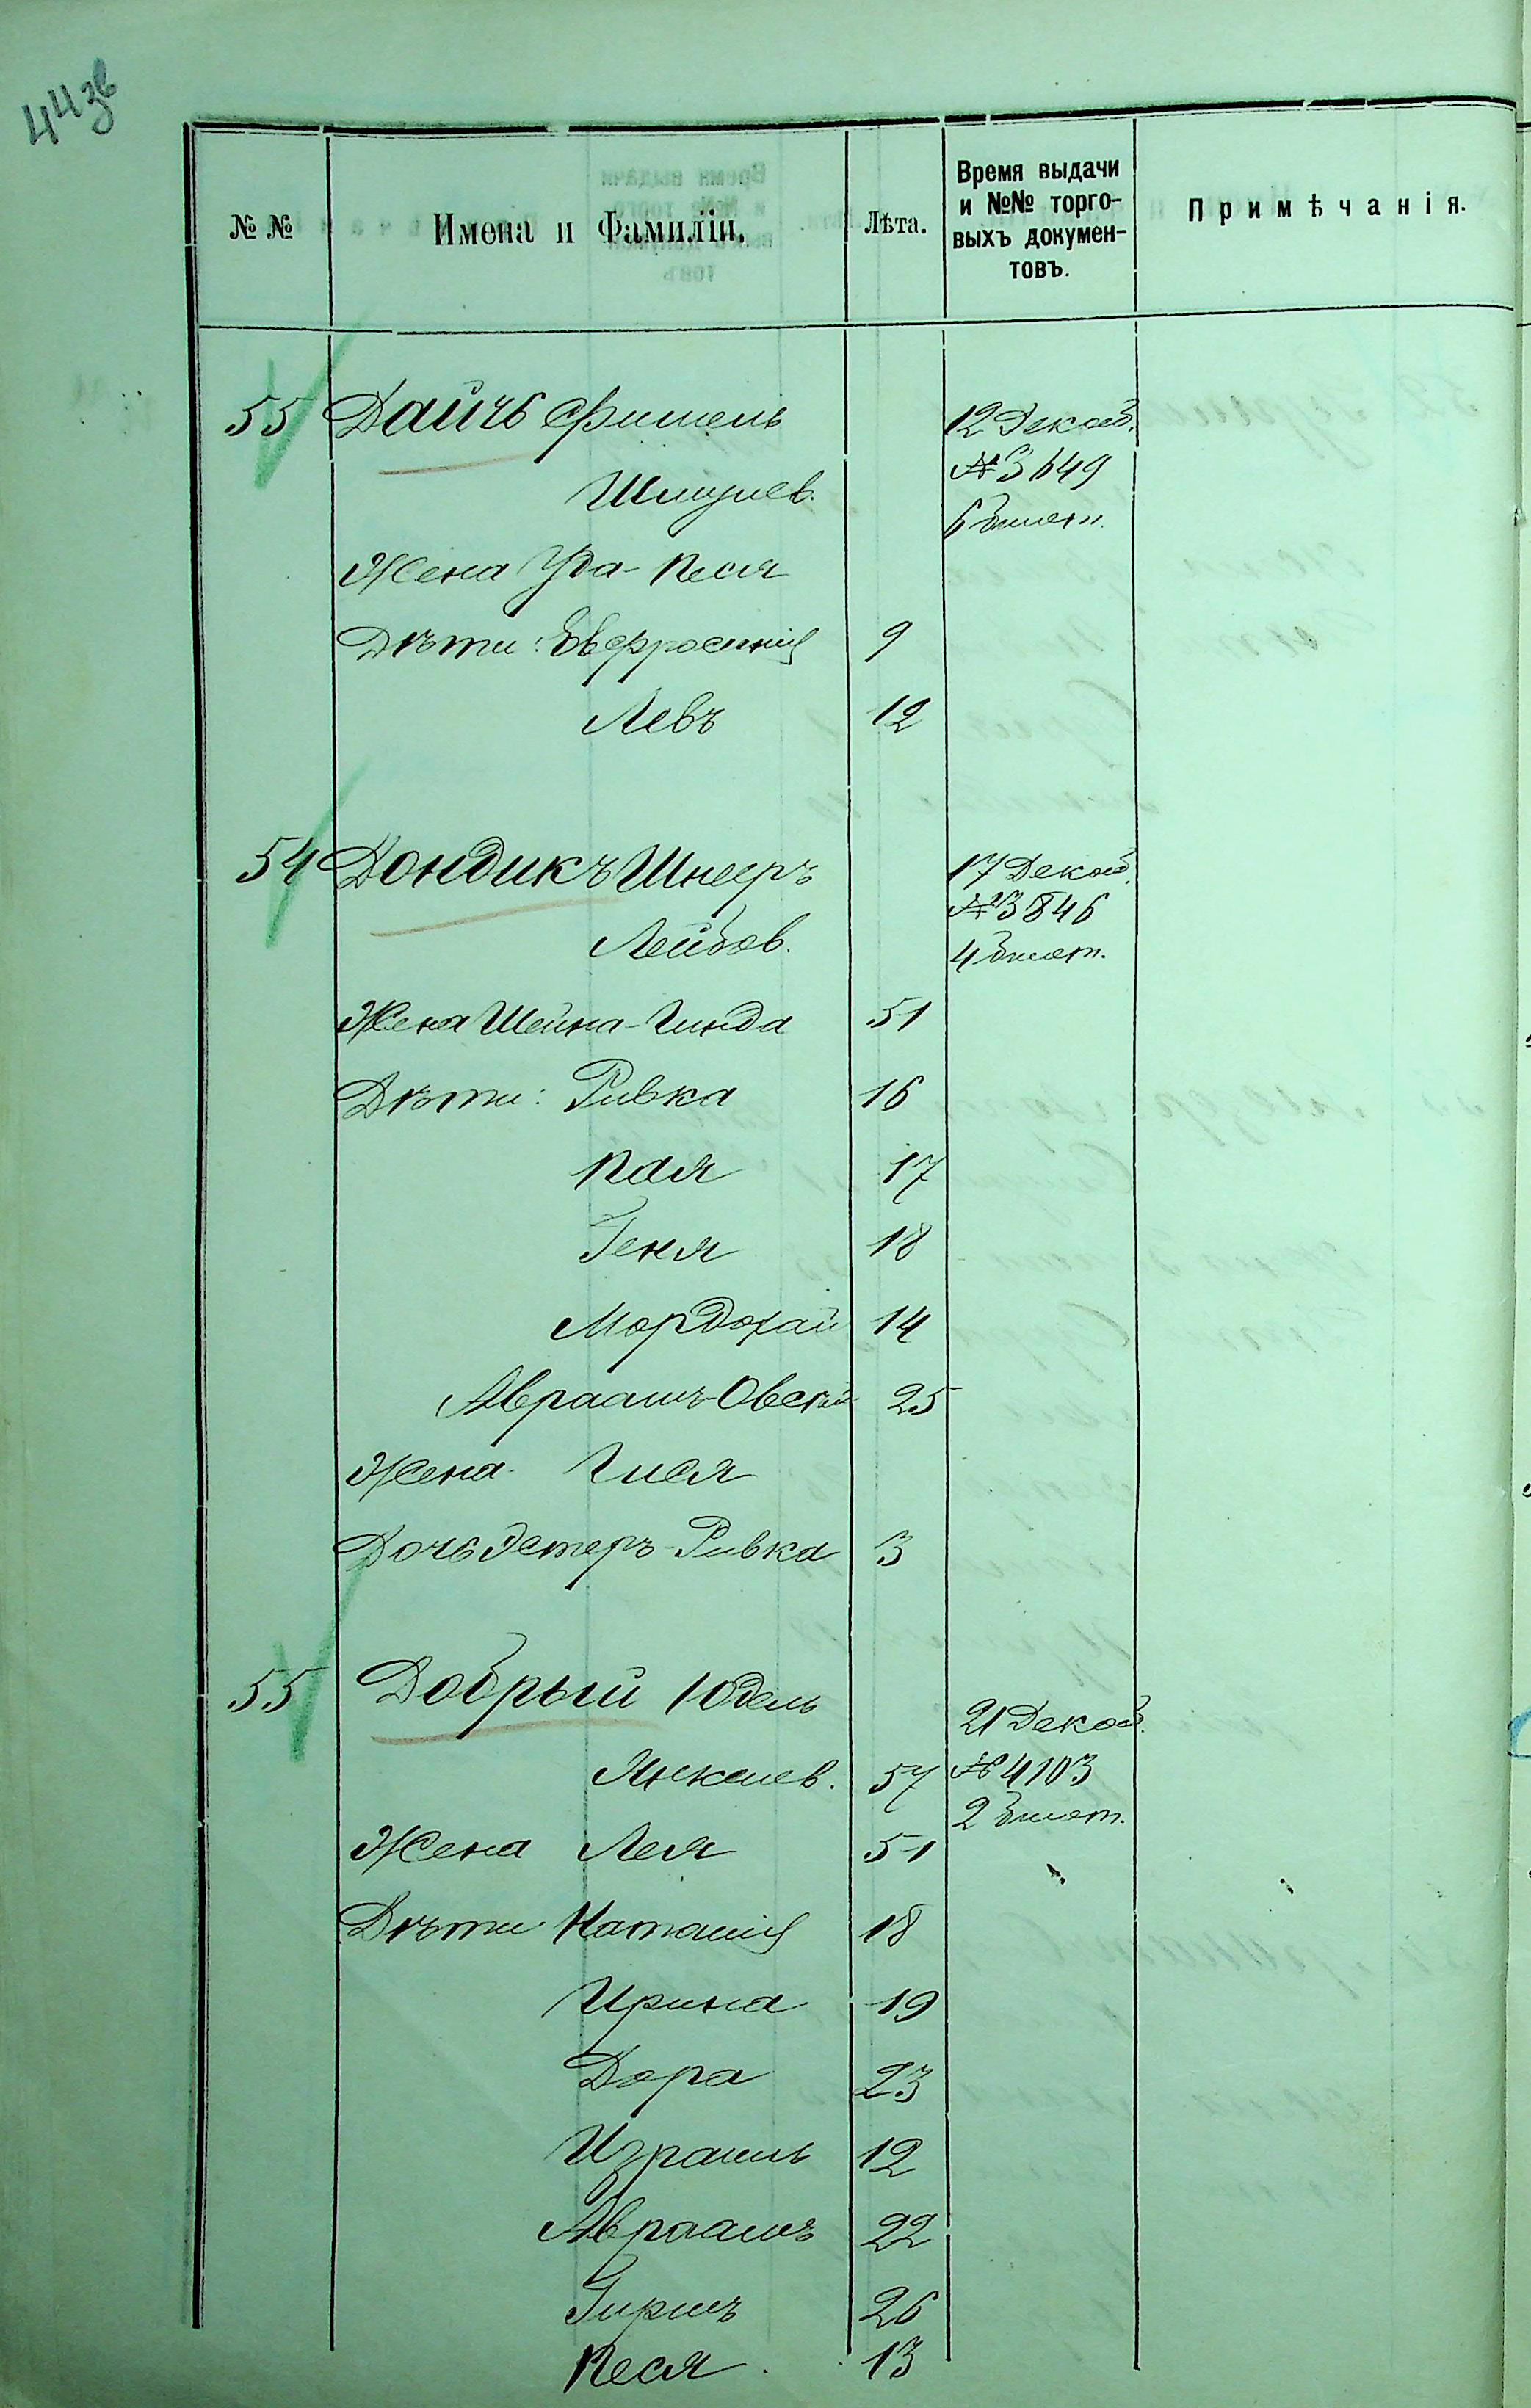 44 зв
№ №
Имена и Фамиліи.
Лѣта.
Время выдачи
и №№ торго-
выхъ докумен-
товъ.
Примѣчанія.
55 Дайчъ Фишель 12 Декаб.
Шмулев. № 3649
6 билет.
Жена Уда-Песя
Дѣти: Евфросинія 9
Левъ 12
54 Дондикъ Шнееръ 17 Декаб.
Лейбов. № 3846
4 билет.
Жена Шейна-Гинда 51
Дѣти: Ривка 16
Пая 17
Геня 18
Мордохай 14
Авраамъ-Овсей 25
Жена Гися
Дочь Эстеръ-Ривка 3
55 Добрый Юдель 21 Декаб.
Янкелев. 57 № 4103
2 билет.
Жена Лея 51
Дѣти Наталія 18
Ирина 19
Дора 23
Израиль 12
Авраамъ 22
Гиршъ 26
Песя 13